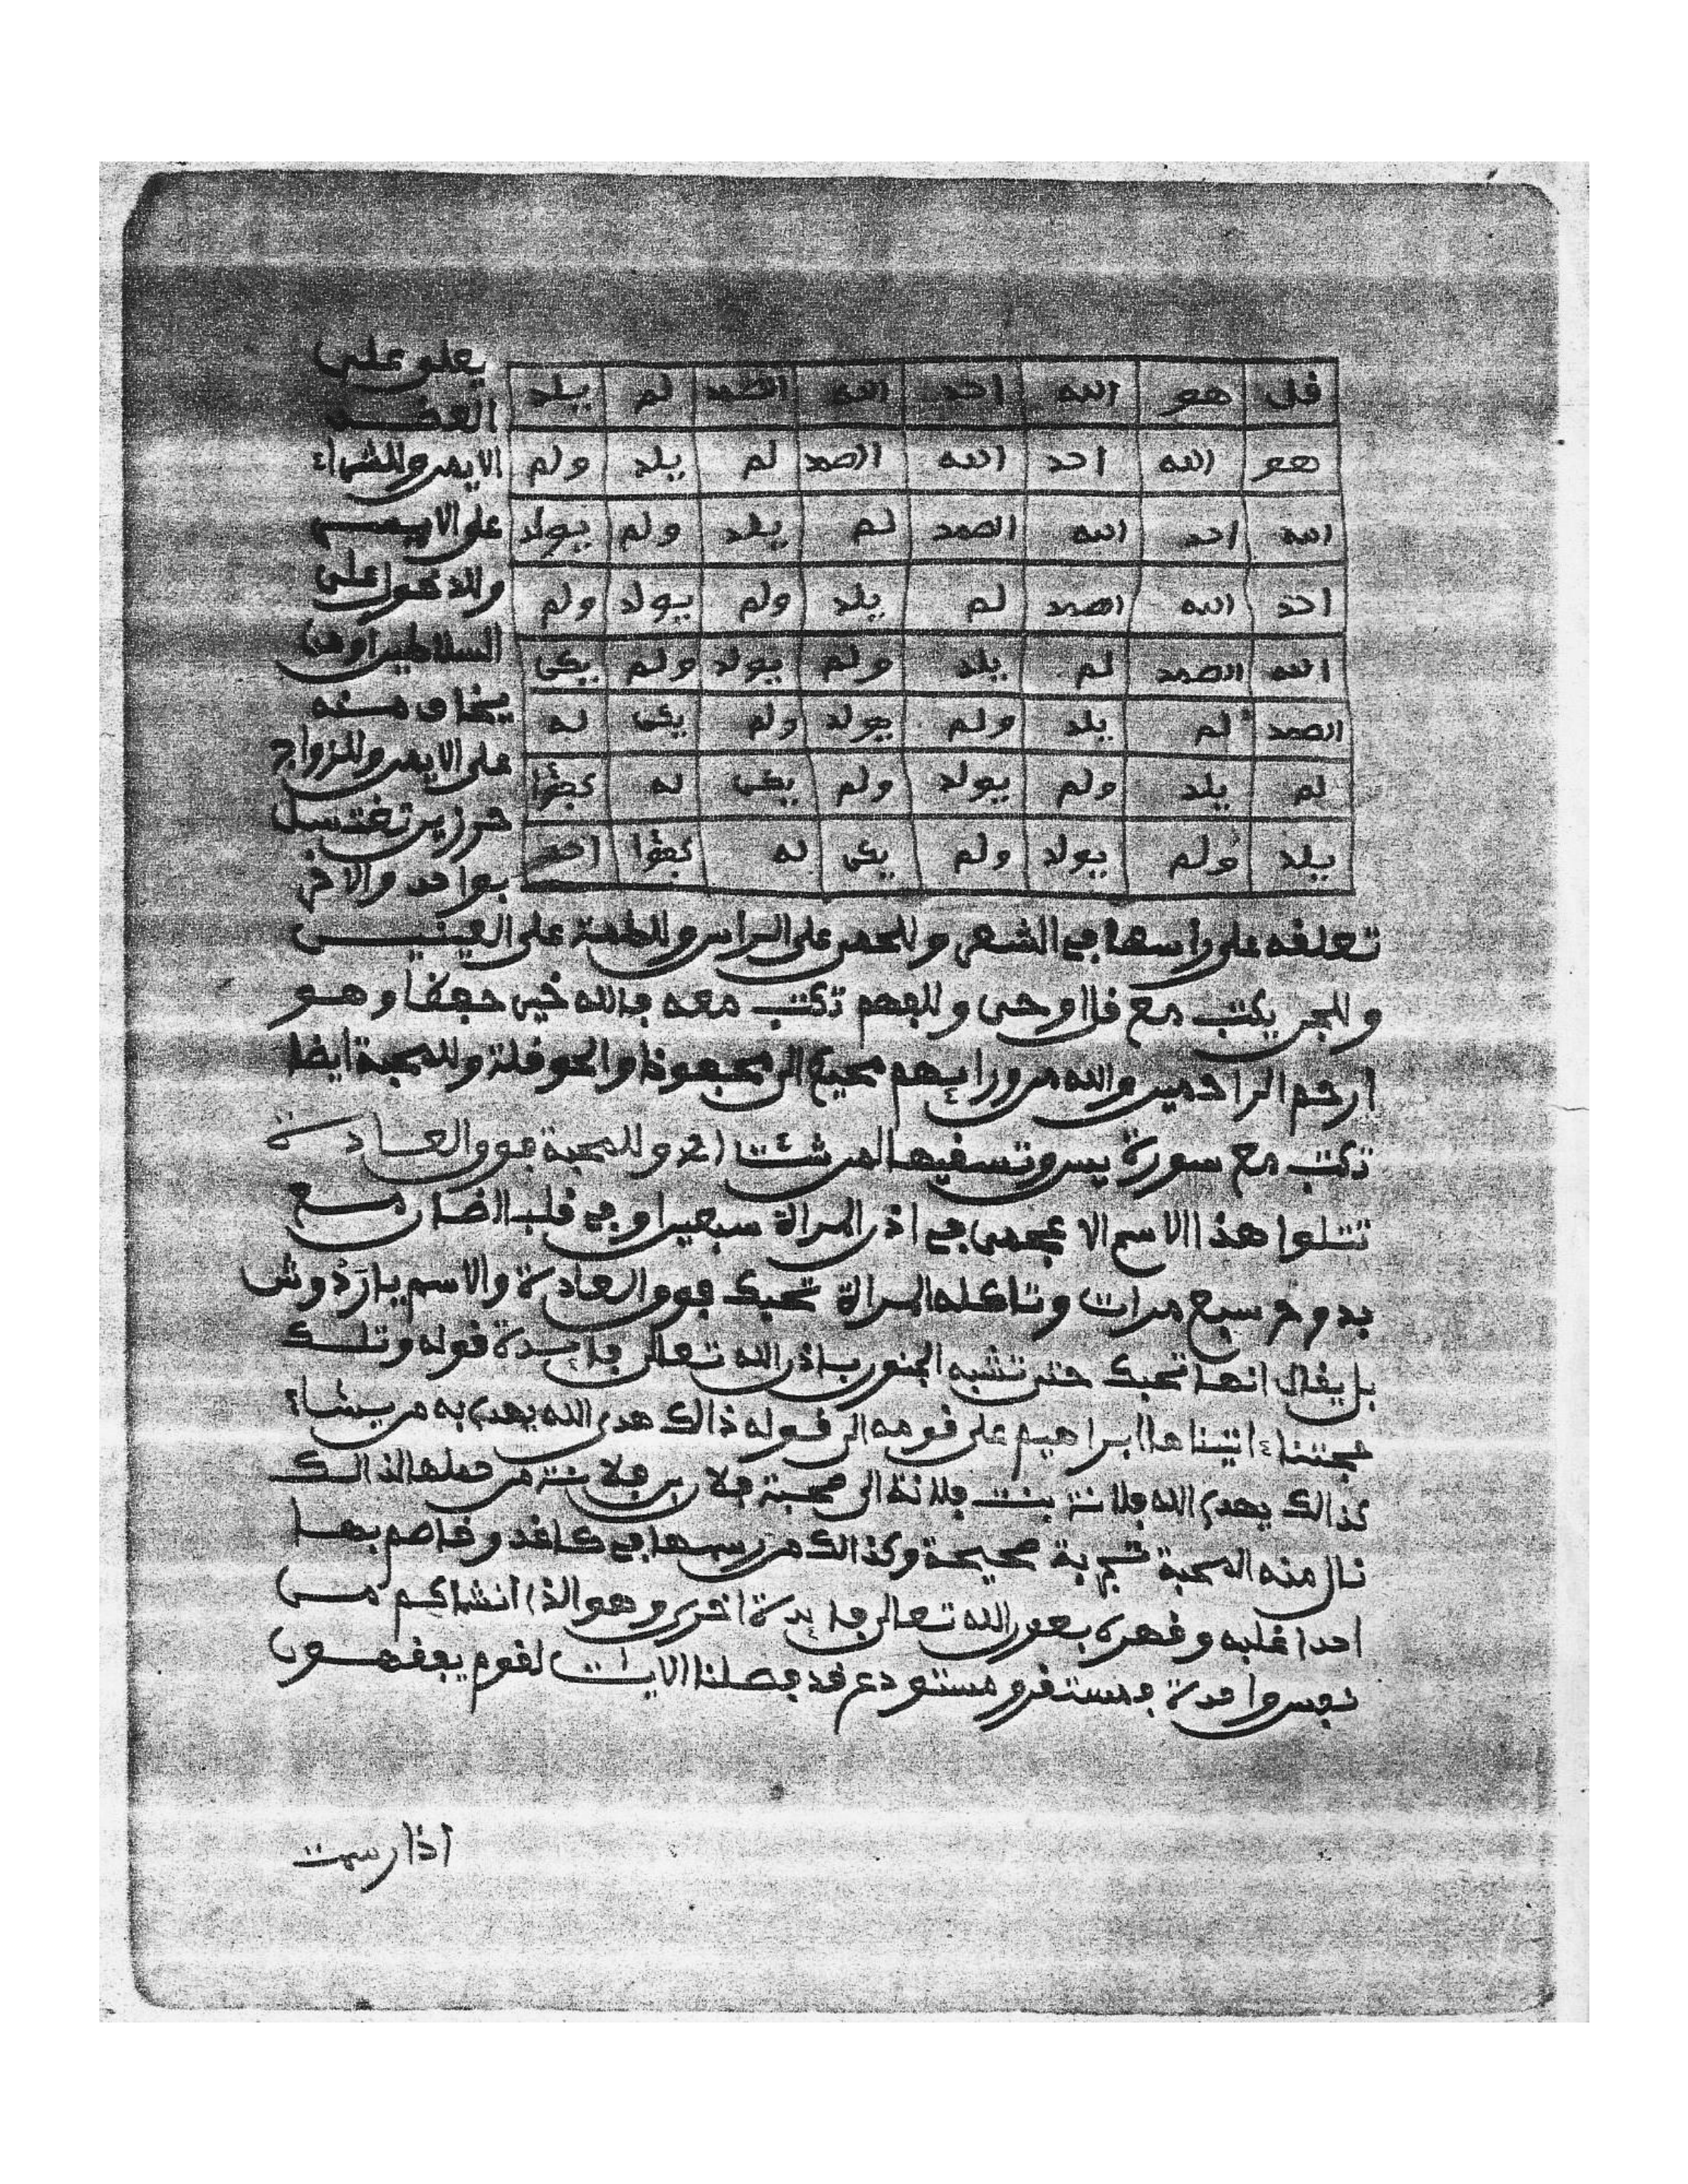 قل هو الله احد الله الصمد لم يلد
هو الله احد الله الصمد لم يلد ولم
الله احد الله الصمد لم يلد ولم يولد
احد الله الصمد لم يلد ولم يولد ولم
الله الصمد لم يلد ولم يولد ولم يكن
الصمد لم يلد ولم يولد ولم يكن له
لم يلد ولم يولد ولم يكن له كفؤا
يلد ولم يولد ولم يكن له كفؤا احد
يعلق على
العضد
الايمن وللشراء
على الايمن
وللدخول على
السلاطين او من
يخاف منه
على الايمن وللزواج
حرزين تغتسل
بواحد والاخر
تعلقه على راسها في الشعر وللحمى على الراس وللطمة على العينين
وللجن يكتب مع قل اوحي وللبهم تكتب معه فالله خير حفظا وهو
ارحم الراحمين والله من ورايهم محيط الى محفوظ والحوقلة وللمحبة ايضا
تكتب مع سورة يس وتسقيها لمن شئت اخ وللمحبة فوق العادة
تتلوا هذا الاسم الاعجمي في اذن المراة سبعين او في قلب الضان مع
بدوح سبع مرات وتاكله المراة تحبك فوق العادة والاسم يا رَدْوش
بل يقال انها تحبك حتى تشبه الجنون باذن الله تعالى فايدة قوله وتلك
حجتنا ءاتيناها ابراهيم على قومه الى قوله ذالك هدى الله يهدي به من يشاء
كذالك يهدي الله فلانة بنت فلانة الى محبة فلان بن فلانة من حملها لذالك
نال منه المحبة تجربة صحيحة وكذالك من رسمها في كاغد وخاصم بها
احدا غلبه وقهره بعون الله تعالى فايدة اخرى وهو الذي انشاكم من
نفس واحدة فمستقر ومستودع قد فصلنا الايات لقوم يفقهون
اذا رسمت